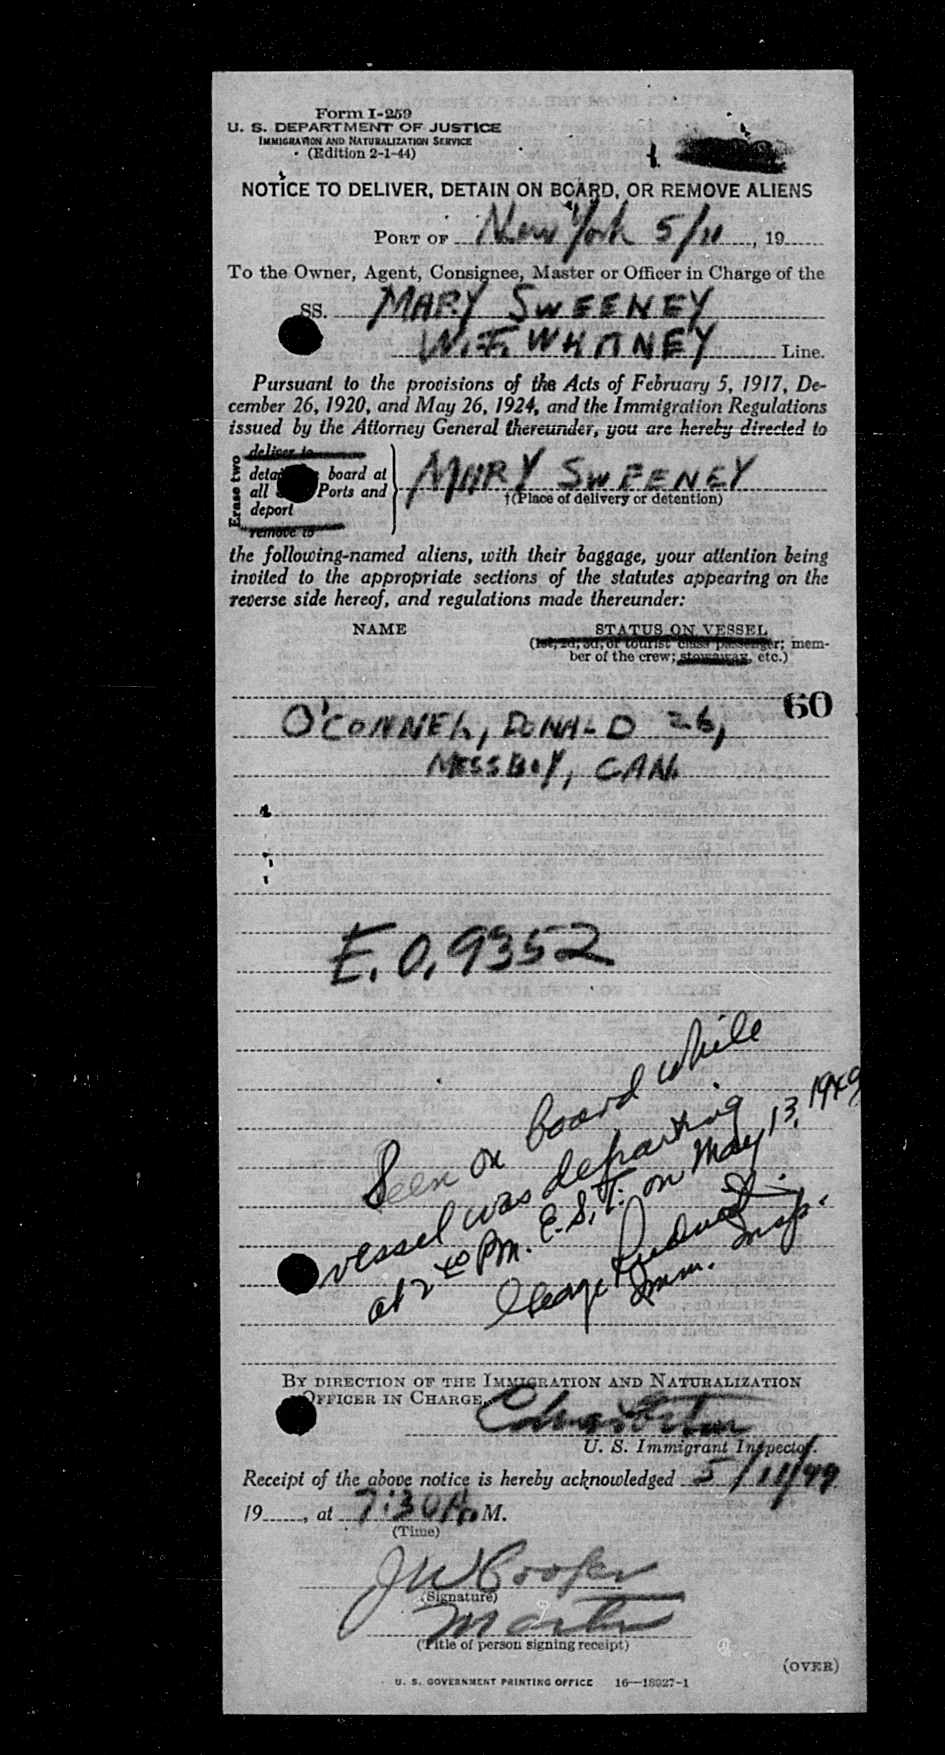 Form I-259
U. S. DEPARTMENT OF JUSTICE
IMMIGRATION AND NATURALIZATION SERVICE
(Edition 2-1-44)
NOTICE TO DELIVER, DETAIN ON BOARD, OR REMOVE ALIENS
PORT OF New York 5/11, 19
To the Owner, Agent, Consignee, Master or Officer in Charge of the
SS. MARY SWEENEY
W.F. WHITNEY Line.
Pursuant to the provisions of the Acts of February 5, 1917, De-
cember 26, 1920, and May 26, 1924, and the Immigration Regulations
issued by the Attorney General thereunder, you are hereby directed to
Erase two
deliver to
board at
all Ports and
deport
remove to
MARY SWEENEY
†(Place of delivery or detention)
the following-named aliens, with their baggage, your attention being
invited to the appropriate sections of the statutes appearing on the
reverse side hereof, and regulations made thereunder:
NAME STATUS ON VESSEL
(1st, 2d, 3d, or tourist class passenger; mem-
ber of the crew; stowaway, etc.)
60
O'CONNEL, DONALD 26,
MESSBOY, CAN.
E.O. 9352
Seen on board while
vessel was departing
at 2 00 PM. E.S.T. on May 13, 1949
George
Imm. Insp.
BY DIRECTION OF THE IMMIGRATION AND NATURALIZATION
OFFICER IN CHARGE,
U. S. Immigrant Inspector.
Receipt of the above notice is hereby acknowledged 5/11/49
19, at 7:30 A. M.
(Time)
J W Cooper
(Signature)
Master
(Title of person signing receipt)
(OVER)
U. S. GOVERNMENT PRINTING OFFICE 16—18927-1